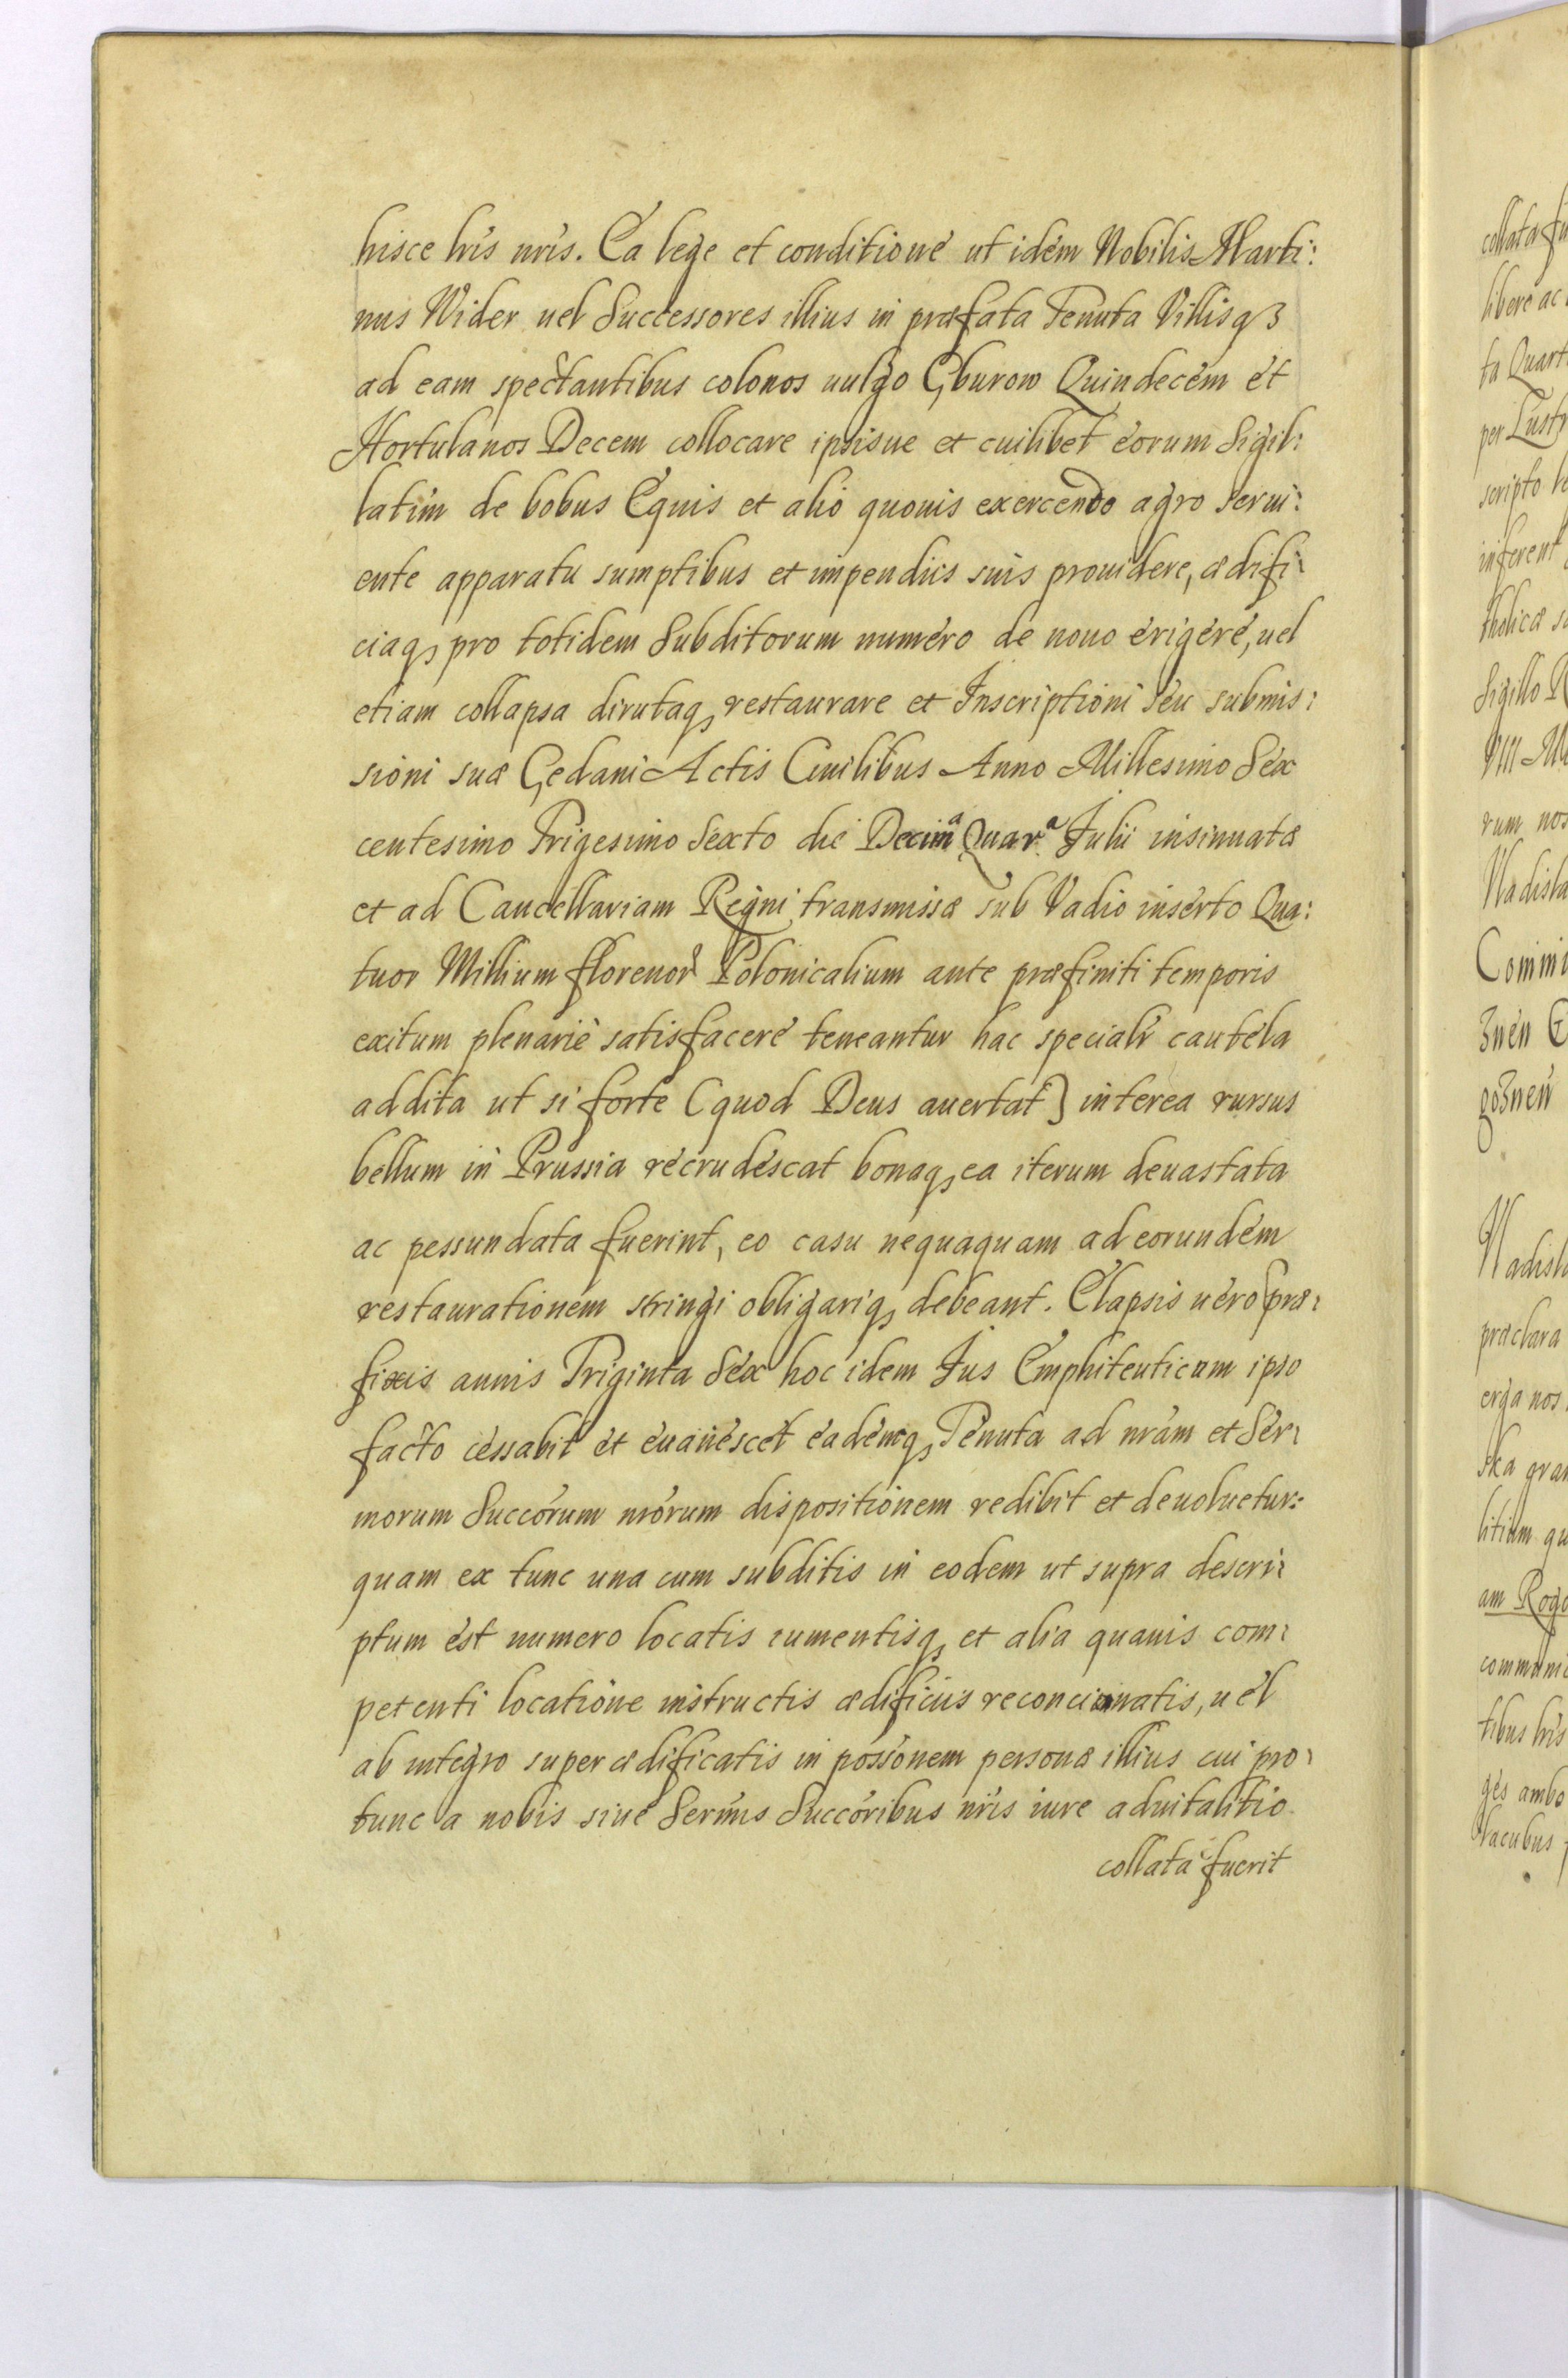 hisce lris nris. Ea lege et conditione ut idem Nobilis Marti:
nus Wider uel Successores illius in præfata Tenuta Villisqz
ad eam spectantibus colonos uulgo Gburow Quindecem et
Hortulanos Decem collocare ipsisue et cuilibet eorum Sigil:
latim de bobus Equis et alio quouis exercendo agro serui:
ente apparatu sumptibus et impendiis suis prouidere, ædifi:
ciaq, pro totidem Subditorum numero de nouo erigere, uel
etiam collapsa dirutaq, restaurare et Inscriptioni seu submis:
sioni suæ Gedani Actis Ciuilibus Anno Millesimo Sex
centesimo Trigesimo Sexto die Decimª Quarª Julii insinuatæ
et ad Cancellariam Regni transmissæ sub Vadio inserto Qua:
tuor Millium florenor Polonicalium ante præfiniti temporis
exitum plenariè satisfacere teneantur hac speciali cautela
addita ut si forte (quod Deus auertat) interea rursus
bellum in Prussia recrudescat bonaq, ea iterum deuastata
ac pessundata fuerint, eo casu nequaquam ad eorundem
restaurationem stringi obligariq, debeant. Elapsis uero præ:
fixis annis Triginta Sex hoc idem Jus Emphiteuticum ipso
facto cessabit et euanescet eademq, Tenuta ad nram et Ser:
morum Succorum nrorum dispositionem redibit et deuoluetur:
quam ex tunc una cum subditis in eodem ut supra descri:
ptum est numero locatis iumentisq, et alia quauis com:
petenti locatione instructis ædificiis reconcinnatis, uel
ab integro superædificatis in possionem personæ illius cui pro:
tunc a nobis siue Sermis Succoribus nris iure aduitalitio
collata fuerit
collata fu
libere ac
ta Quart
per Lustr
scripto
inferent
tholicæ s
Sigillo R
VIII M
rum nos
Vladisla
Commi
znen
goznen
Vladisl
præclara
erga nos
ska gra
litium qu
am Rogo
communi
tibus lris
ges ambo
lacubus